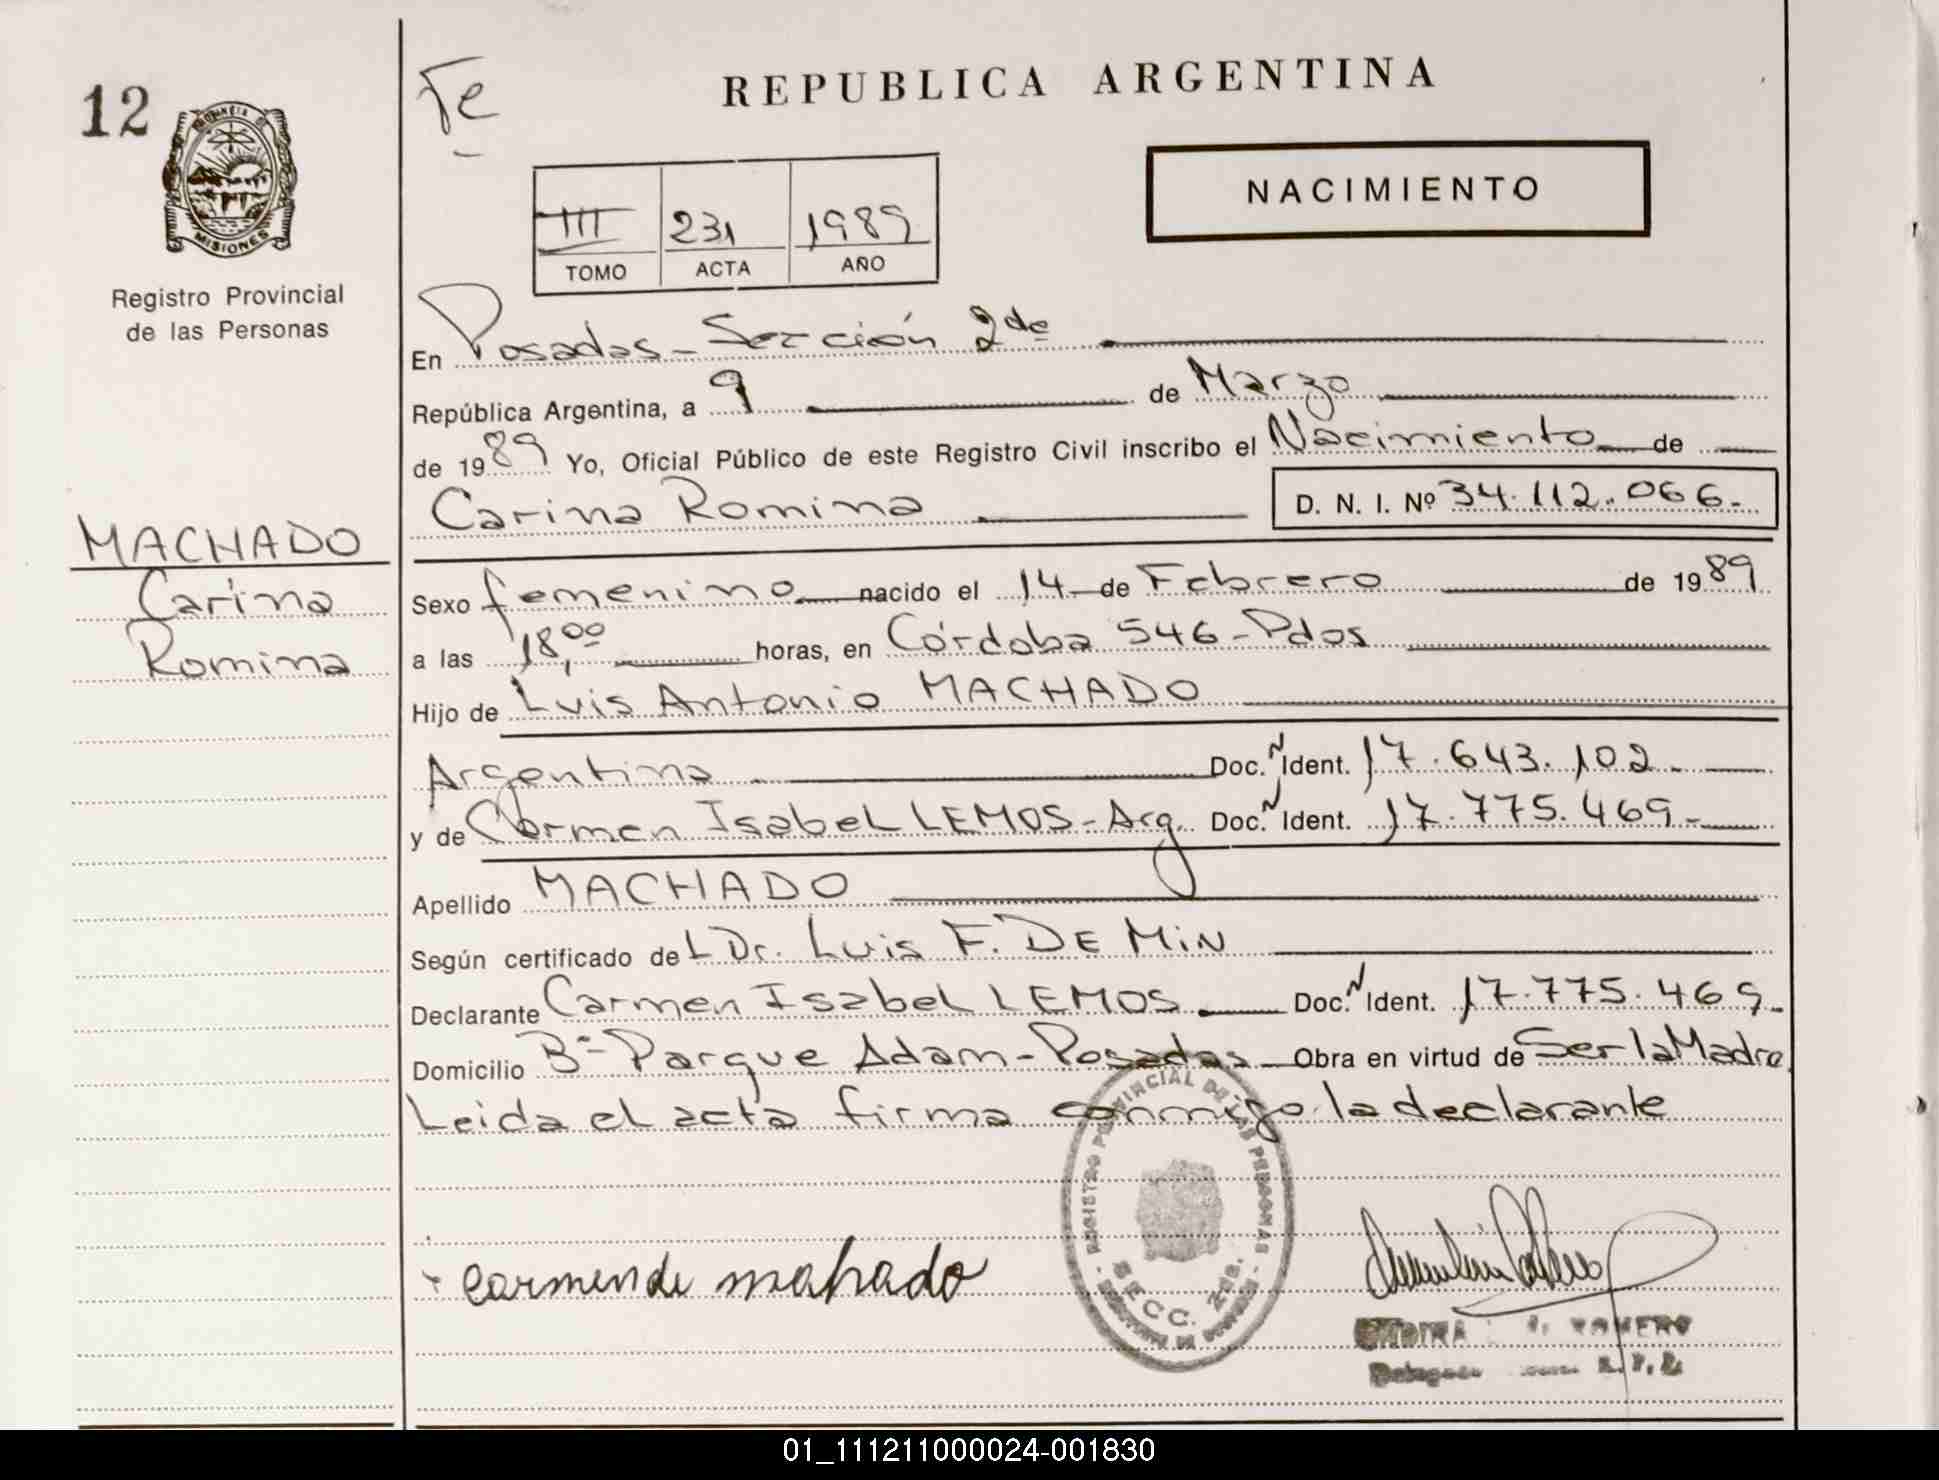 12
PROVINCIA DE
MISIONES
Registro Provincial
de las Personas
MACHADO
Carina
Romina
Fe
REPUBLICA ARGENTINA
NACIMIENTO
III 231 1989
TOMO ACTA AÑO
En Posadas - Sección 2da
República Argentina, a 9 de Marzo
de 1989 Yo, Oficial Público de este Registro Civil inscribo el Nacimiento de
Carina Romina D. N. I. Nº 34.112.066.-
Sexo femenino nacido el 14 de Febrero de 1989
a las 18,00 horas, en Córdoba 546 - Pdas
Hijo de Luis Antonio MACHADO
Argentina Doc. N Ident. 17.643.102.-
y de Carmen Isabel LEMOS - Arg. Doc. N Ident. 17.775.469.-
Apellido MACHADO
Según certificado del Dr. Luis F. DE MiN
Declarante Carmen Isabel LEMOS Doc. N Ident. 17.775.469.-
Domicilio Bº Parque Adam - Posadas Obra en virtud de Ser la Madre
Leida el acta firma conmigo la declarante
REGISTRO PROVINCIAL DE LAS PERSONAS
SECC. 2da.
carmen de mahado
ROMERO
01_111211000024-001830